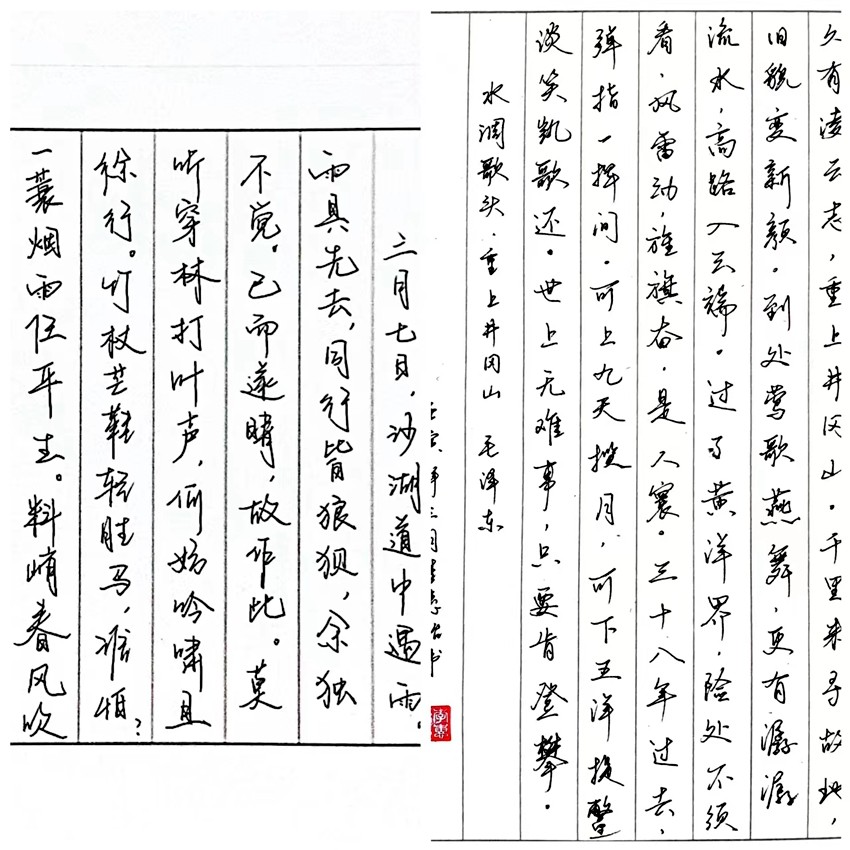 三月七日，沙湖道中遇雨。
雨具先去，同行皆狼狈，余独
不觉。已而遂晴，故作此。莫
听穿林打叶声，何妨吟啸且
徐行。竹杖芒鞋轻胜马，谁怕？
一蓑烟雨任平生。料峭春风吹
久有凌云志，重上井冈山。千里来寻故地，
旧貌变新颜。到处莺歌燕舞，更有潺潺
流水，高路入云端。过了黄洋界，险处不须
看。风雷动，旌旗奋，是人寰。三十八年过去，
弹指一挥间。可上九天揽月，可下五洋捉鳖
谈笑凯歌还。世上无难事，只要肯登攀。
水调歌头·重上井冈山 毛泽东
壬寅年三月 书